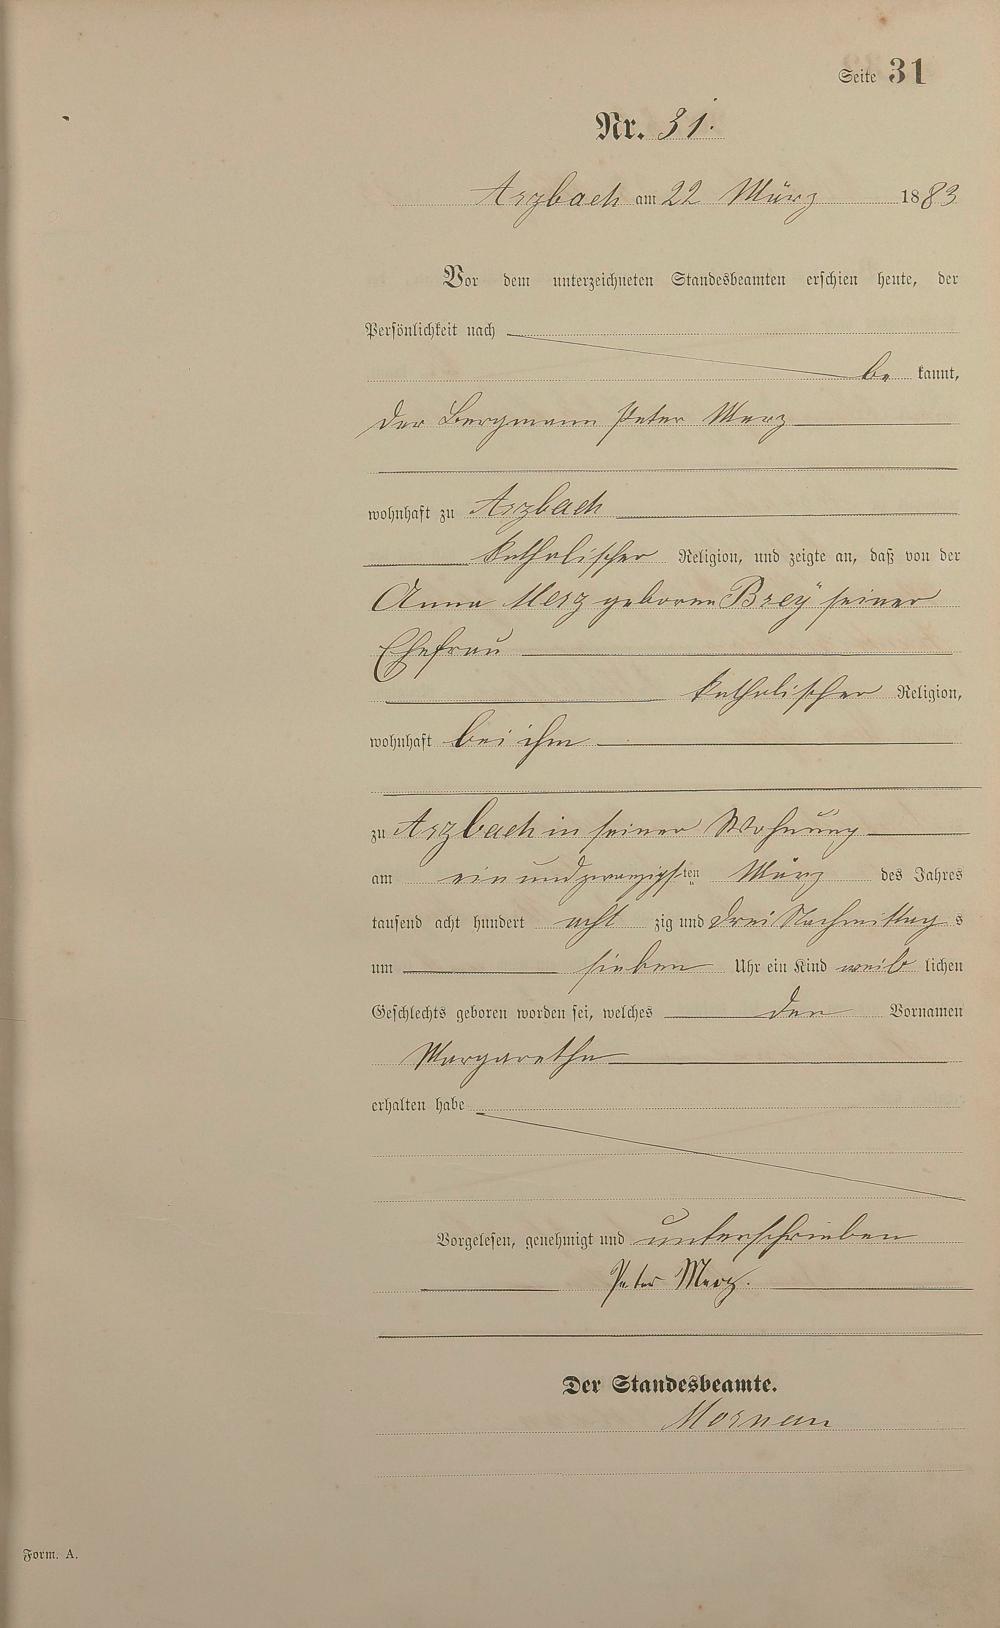 Seite 31
Nr. 31.
Arzbach am 22 März 1883
Vor dem unterzeichneten Standesbeamten erschien heute, der
Persönlichkeit nach
be kannt,
der Bergmann Peter Merz
wohnhaft zu Arzbach
katholischer Religion, und zeigte an, daß von der
Anna Merz geborene Brey seiner
Ehefrau
katholischer Religion,
wohnhaft bei ihm
zu Arzbach in seiner Wohnung
am ein und zwanzigsten März des Jahres
tausend acht hundert acht zig und drei Nachmittag s
um sieben Uhr ein Kind weib lichen
Geschlechts geboren worden sei, welches den Vornamen
Margaretha
erhalten habe
Vorgelesen, genehmigt und unterschrieben
Peter Merz.
Der Standesbeamte.
Form. A.